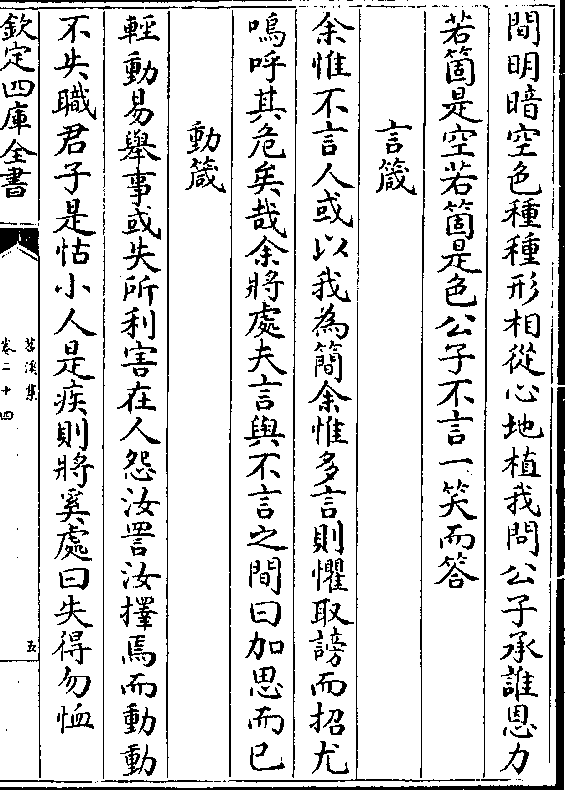 間明暗空色種種形相從心地植我問公子承誰恩力
若箇是空若箇是色公子不言一笑而答
言箴
余惟不言人或以我為簡余惟多言則懼取謗而招尤
嗚呼其危矣哉余將處夫言與不言之間曰加思而已
動箴
輕動易舉事或失所利害在人怨汝詈汝擇焉而動動
不失職君子是怙小人是疾則將奚處曰失得勿恤
欽定四庫全書
苕溪集
卷二十四
五